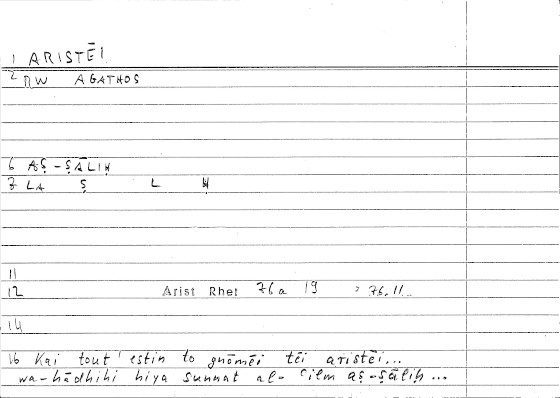 1 ARISTĒI
2 RW AGATHOS
6 AṢ-ṢĀLIḤ
7 LA Ṣ L Ḥ
11
12 Arist Rhet 76a 19 = 76,11..
14
16 Kai tout' estin to gnōmēi tēi aristēi...
wa-hādhihi hiya sunnat al-ʿilm aṣ-ṣāliḥ ...